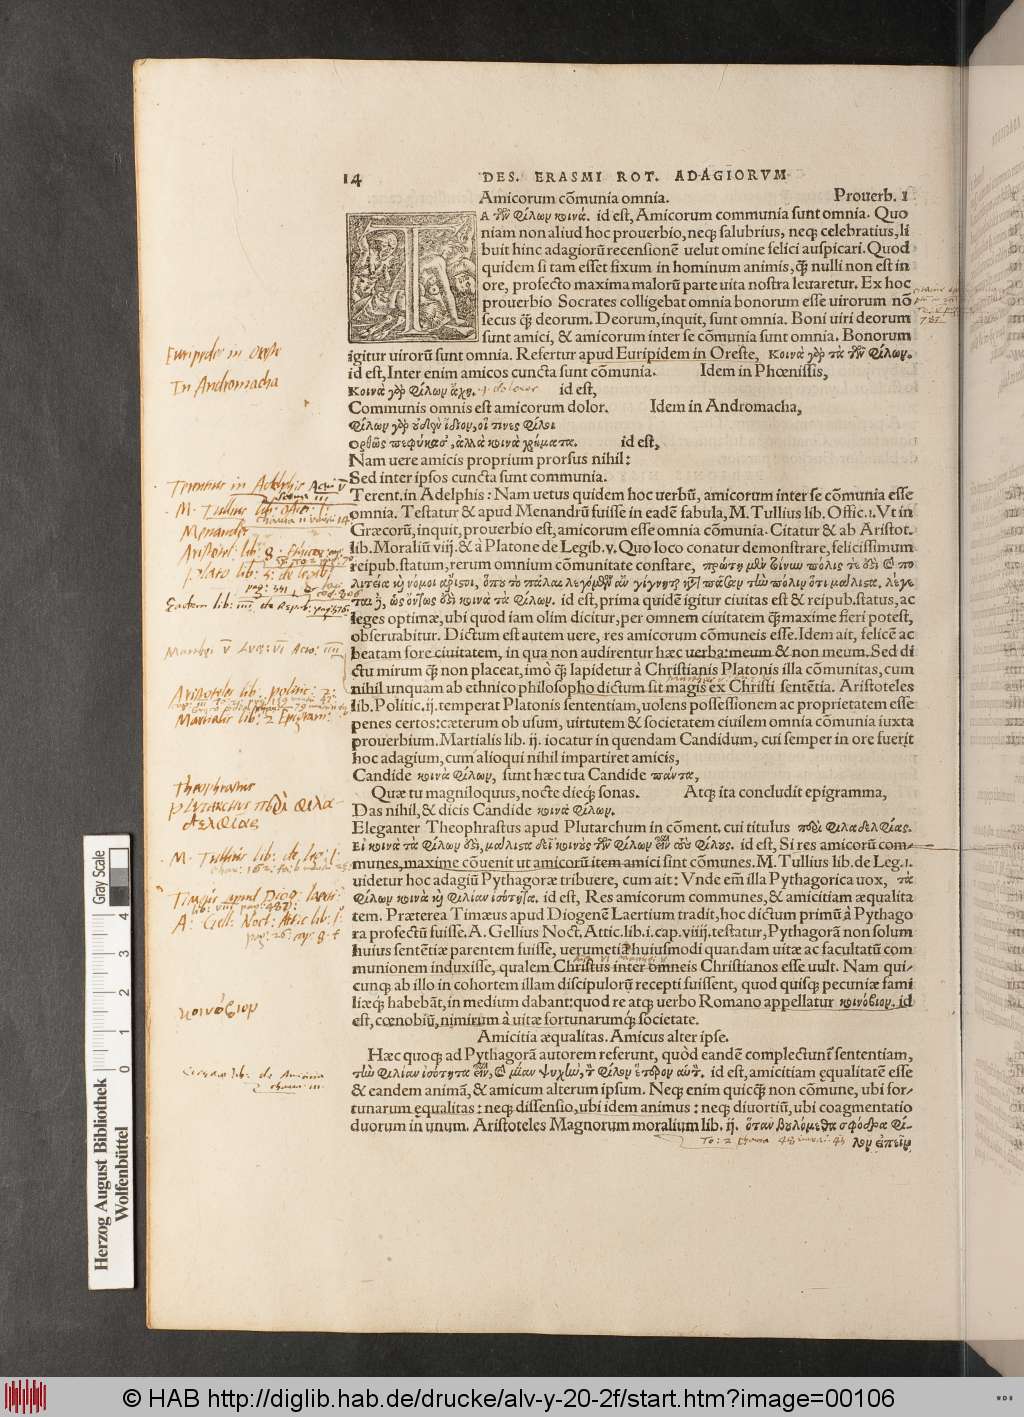 14 DES. ERASMI ROT. ADAGIORVM
Amicorum cõmunia omnia. Prouerb. 1
TΑ τῶν φίλων κοινά. id est, Amicorum communia sunt omnia. Quo
niam non aliud hoc prouerbio, neqꝫ salubrius, neqꝫ celebratius, li
buit hinc adagiorũ recensionẽ uelut omine felici auspicari. Quod
quidem si tam esset fixum in hominum animis, q̃ nulli non est in
ore, profecto maxima malorũ parte uita nostra leuaretur. Ex hoc
prouerbio Socrates colligebat omnia bonorum esse uirorum nõ
secus q̃ deorum. Deorum, inquit, sunt omnia. Boni uiri deorum
sunt amici, & amicorum inter se cõmunia sunt omnia. Bonorum
igitur uirorũ sunt omnia. Refertur apud Euripidem in Oreste, Κοινὰ γὰρ τὰ τῶν φίλων.
id est, Inter enim amicos cuncta sunt cõmunia. Idem in Phœnissis,
Κοινὰ γὰρ φίλων ἄχη. id est,
Communis omnis est amicorum dolor. Idem in Andromacha,
Φίλων γὰρ οὐδὲν ἴδιον, οἵ τινες φίλοι
Ορθῶς πεφύκασ᾽, ἀλλὰ κοινὰ χρήματα. id est,
Nam uere amicis proprium prorsus nihil:
Sed inter ipsos cuncta sunt communia.
Terent. in Adelphis: Nam uetus quidem hoc uerbũ, amicorum inter se cõmunia esse
omnia. Testatur & apud Menandrũ fuisse in eadẽ fabula, M. Tullius lib. Offic. 1. Vt in
Græcorũ, inquit, prouerbio est, amicorum esse omnia cõmunia. Citatur & ab Aristot.
lib. Moraliũ viij. & à Platone de Legib. v. Quo loco conatur demonstrare, felicissimum
reipub. statum, rerum omnium cõmunitate constare, πρώτη μὲν τοίνυν πόλις τε ὅδε καὶ πο
λιτεία καὶ νόμοι ἄριστοι, ὅπου τὸ πάλαι λεγόμενον ἂν γίγνηται κατὰ πᾶσαν τὴν πόλιν ὅτι μάλιστα, λέγε
ται δὲ, ὡς ὄντως ἐστὶ κοινὰ τὰ φίλων. id est, prima quidẽ igitur ciuitas est & reipub. status, ac
leges optimæ, ubi quod iam olim dicitur, per omnem ciuitatem q̃ maxime fieri potest,
obseruabitur. Dictum est autem uere, res amicorum cõmuneis esse. Idem ait, felicẽ ac
beatam fore ciuitatem, in qua non audirentur hæc uerba: meum & non meum. Sed di
ctu mirum q̃ non placeat, imò q̃ lapidetur à Christianis Platonis illa cõmunitas, cum
nihil unquam ab ethnico philosopho dictum sit magis ex Christi sentẽtia. Aristoteles
lib. Politic. ij. temperat Platonis sententiam, uolens possessionem ac proprietatem esse
penes certos: cæterum ob usum, uirtutem & societatem ciuilem omnia cõmunia iuxta
prouerbium. Martialis lib. ij. iocatur in quendam Candidum, cui semper in ore fuerit
hoc adagium, cum alioqui nihil impartiret amicis,
Candide κοινὰ φίλων, sunt hæc tua Candide πάντα,
Quæ tu magniloquus, nocte dieqꝫ sonas. Atqꝫ ita concludit epigramma,
Das nihil, & dicis Candide κοινὰ φίλων.
Eleganter Theophrastus apud Plutarchum in cõment. cui titulus περὶ φιλαδελφίας.
Εἰ κοινὰ τὰ φίλων ἐστὶ, μάλιστα δεῖ κοινοὺς τῶν φίλων εἶναι τοὺς φίλους. id est, Si res amicorũ com-
munes, maxime cõuenit ut amicorũ item amici sint cõmunes. M. Tullius lib. de Leg. 1.
uidetur hoc adagiũ Pythagoræ tribuere, cum ait: Vnde em̃ illa Pythagorica uox, τὰ
φίλων κοινὰ καὶ φιλίαν ἰσότητα. id est, Res amicorum communes, & amicitiam æqualita
tem. Præterea Timæus apud Diogenẽ Laertium tradit, hoc dictum primũ à Pythago
ra profectũ fuisse. A. Gellius Noct. Attic. lib. i. cap. viiij. testatur, Pythagorã non solum
huius sentẽtiæ parentem fuisse, uerumetiã huiusmodi quandam uitæ ac facultatũ com
munionem induxisse, qualem Christus inter omneis Christianos esse uult. Nam qui-
cunqꝫ ab illo in cohortem illam discipulorũ recepti fuissent, quod quisqꝫ pecuniæ fami
liæqꝫ habebãt, in medium dabant: quod re atqꝫ uerbo Romano appellatur κοινόβιον. id
est, cœnobiũ, nimirum à uitæ fortunarumqꝫ societate.
Amicitia æqualitas. Amicus alter ipse.
Hæc quoqꝫ ad Pythagorã autorem referunt, quòd eandẽ complectunt̃ sententiam,
τὴν φιλίαν ἰσότητα εἶναι, καὶ μίαν ψυχὴν, τὸν φίλον ἕτερον αὐτόν. id est, amicitiam ęqualitatẽ esse
& eandem animã, & amicum alterum ipsum. Neqꝫ enim quicq̃ non cõmune, ubi for-
tunarum ęqualitas: neqꝫ dissensio, ubi idem animus: neqꝫ diuortiũ, ubi coagmentatio
duorum in unum. Aristoteles Magnorum moralium lib. ij. ὅταν βουλόμεθα σφόδρα φί-
λον εἰπεῖν
Euripides in Oreste
In Andromacha
Terentius in Adelphis
M. Tullius lib: offic: 1.
Menander
Aristot: lib: 8.
plato lib: 5: de legib:
Aristoteles lib: politic: 2:
Martialis lib: 2 Epigram:
Theophrastus
plutarchus περὶ φιλα-
δελφίας
M. Tullius lib: de leg: 1:
Timæus apud Diog: laer:
A. Gell: Noct: Attic lib: 1
κοινόβιον
Herzog August Bibliothek
Wolfenbüttel
Gray Scale
0 1 2 3 4
© HAB http://diglib.hab.de/drucke/alv-y-20-2f/start.htm?image=00106